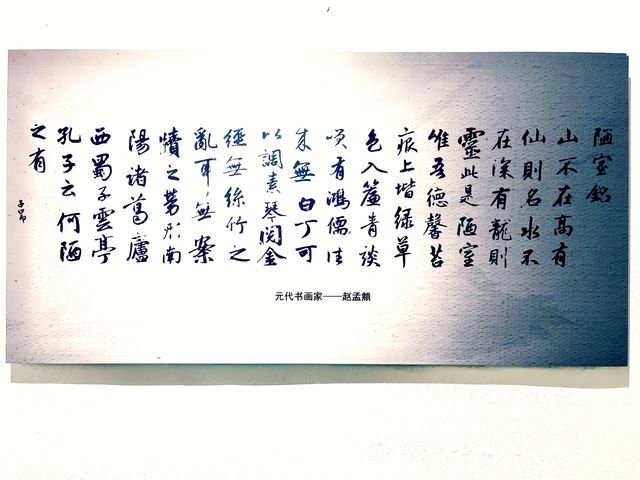 陋室銘
山不在高有
仙則名水不
在深有龍則
靈此是陋室
惟吾德馨苔
痕上堦緑草
色入簾青談
咲有鴻儒往
来無白丁可
以調素琴閱金
經無絲竹之
亂耳無案
牘之勞形南
陽諸葛廬
西蜀子雲亭
孔子云何陋
之有
子昂
元代书画家——赵孟頫